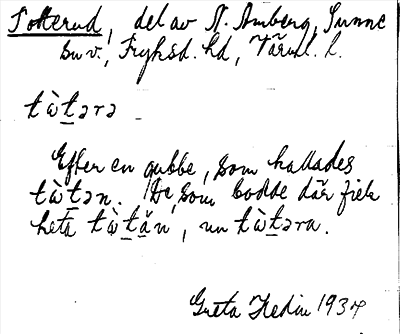 Totterud, del av N. Amberg, Sunne
sn v., Fryksd. hd, Värml. l.
tὰt̲ərə
Efter en gubbe, som kallades
tὰt̲ən. De, som bodde där fick
heta tὰt̲ăn, nu tὰt̲əra.
Greta Hedin 1934